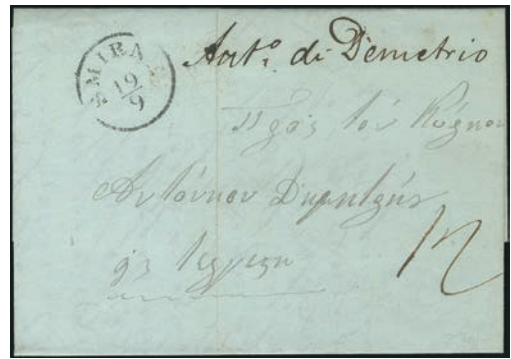 SMIRNA
19/9
Anto. di Demetrio
Πρός τόν Κύριον
Αντόνιον Δημητρίου
12